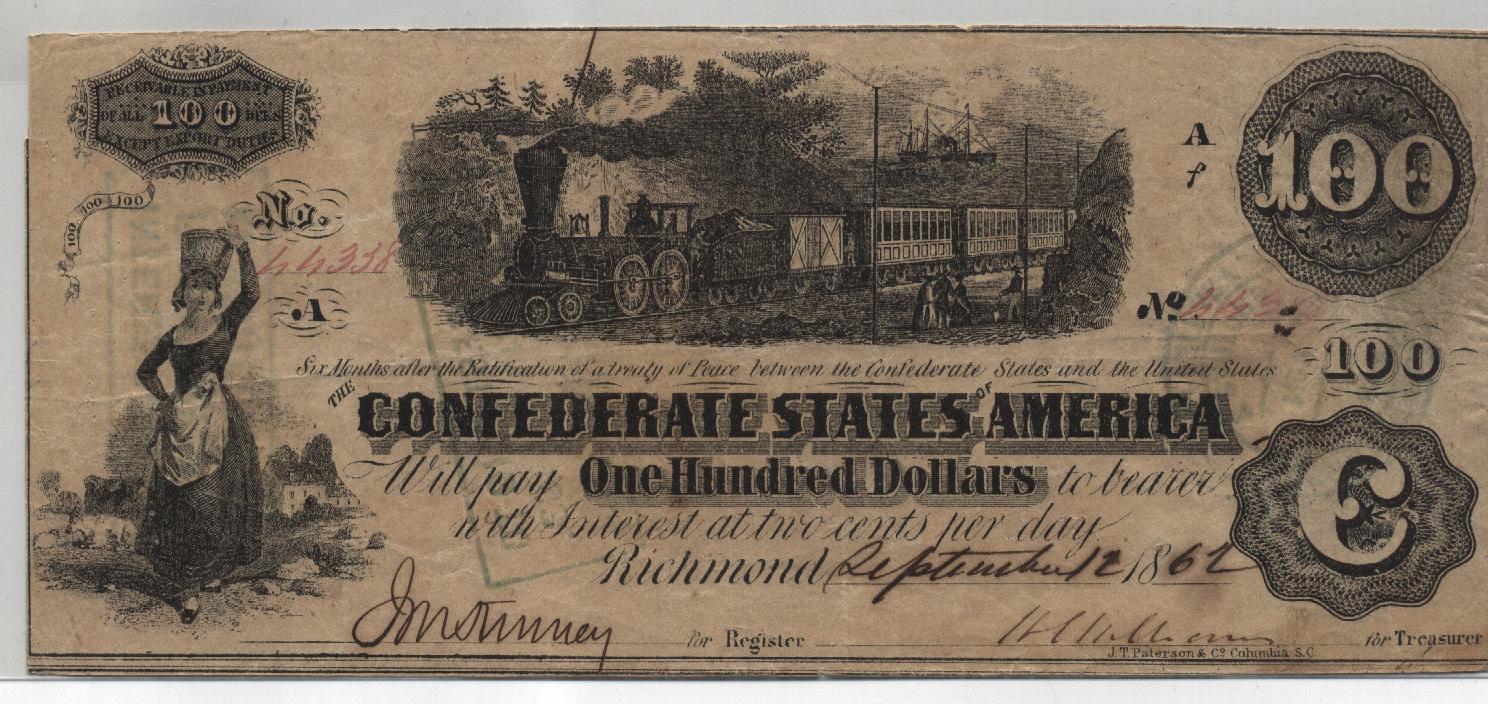 RECEIVABLE IN PAYMENT
OF ALL 100 DUES
EXCEPT EXPORT DUTIES
100 100 100
No.
44338
A
A
f
100
No
100
Six Months after the Ratification of a treaty of Peace between the Confederate States and the United States
THE CONFEDERATE STATES OF AMERICA
Will pay One Hundred Dollars to bearer
with Interest at two cents per day
Richmond September 12 1862
C
for Register
for Treasurer
J.T. Paterson & Co Columbia, S.C.